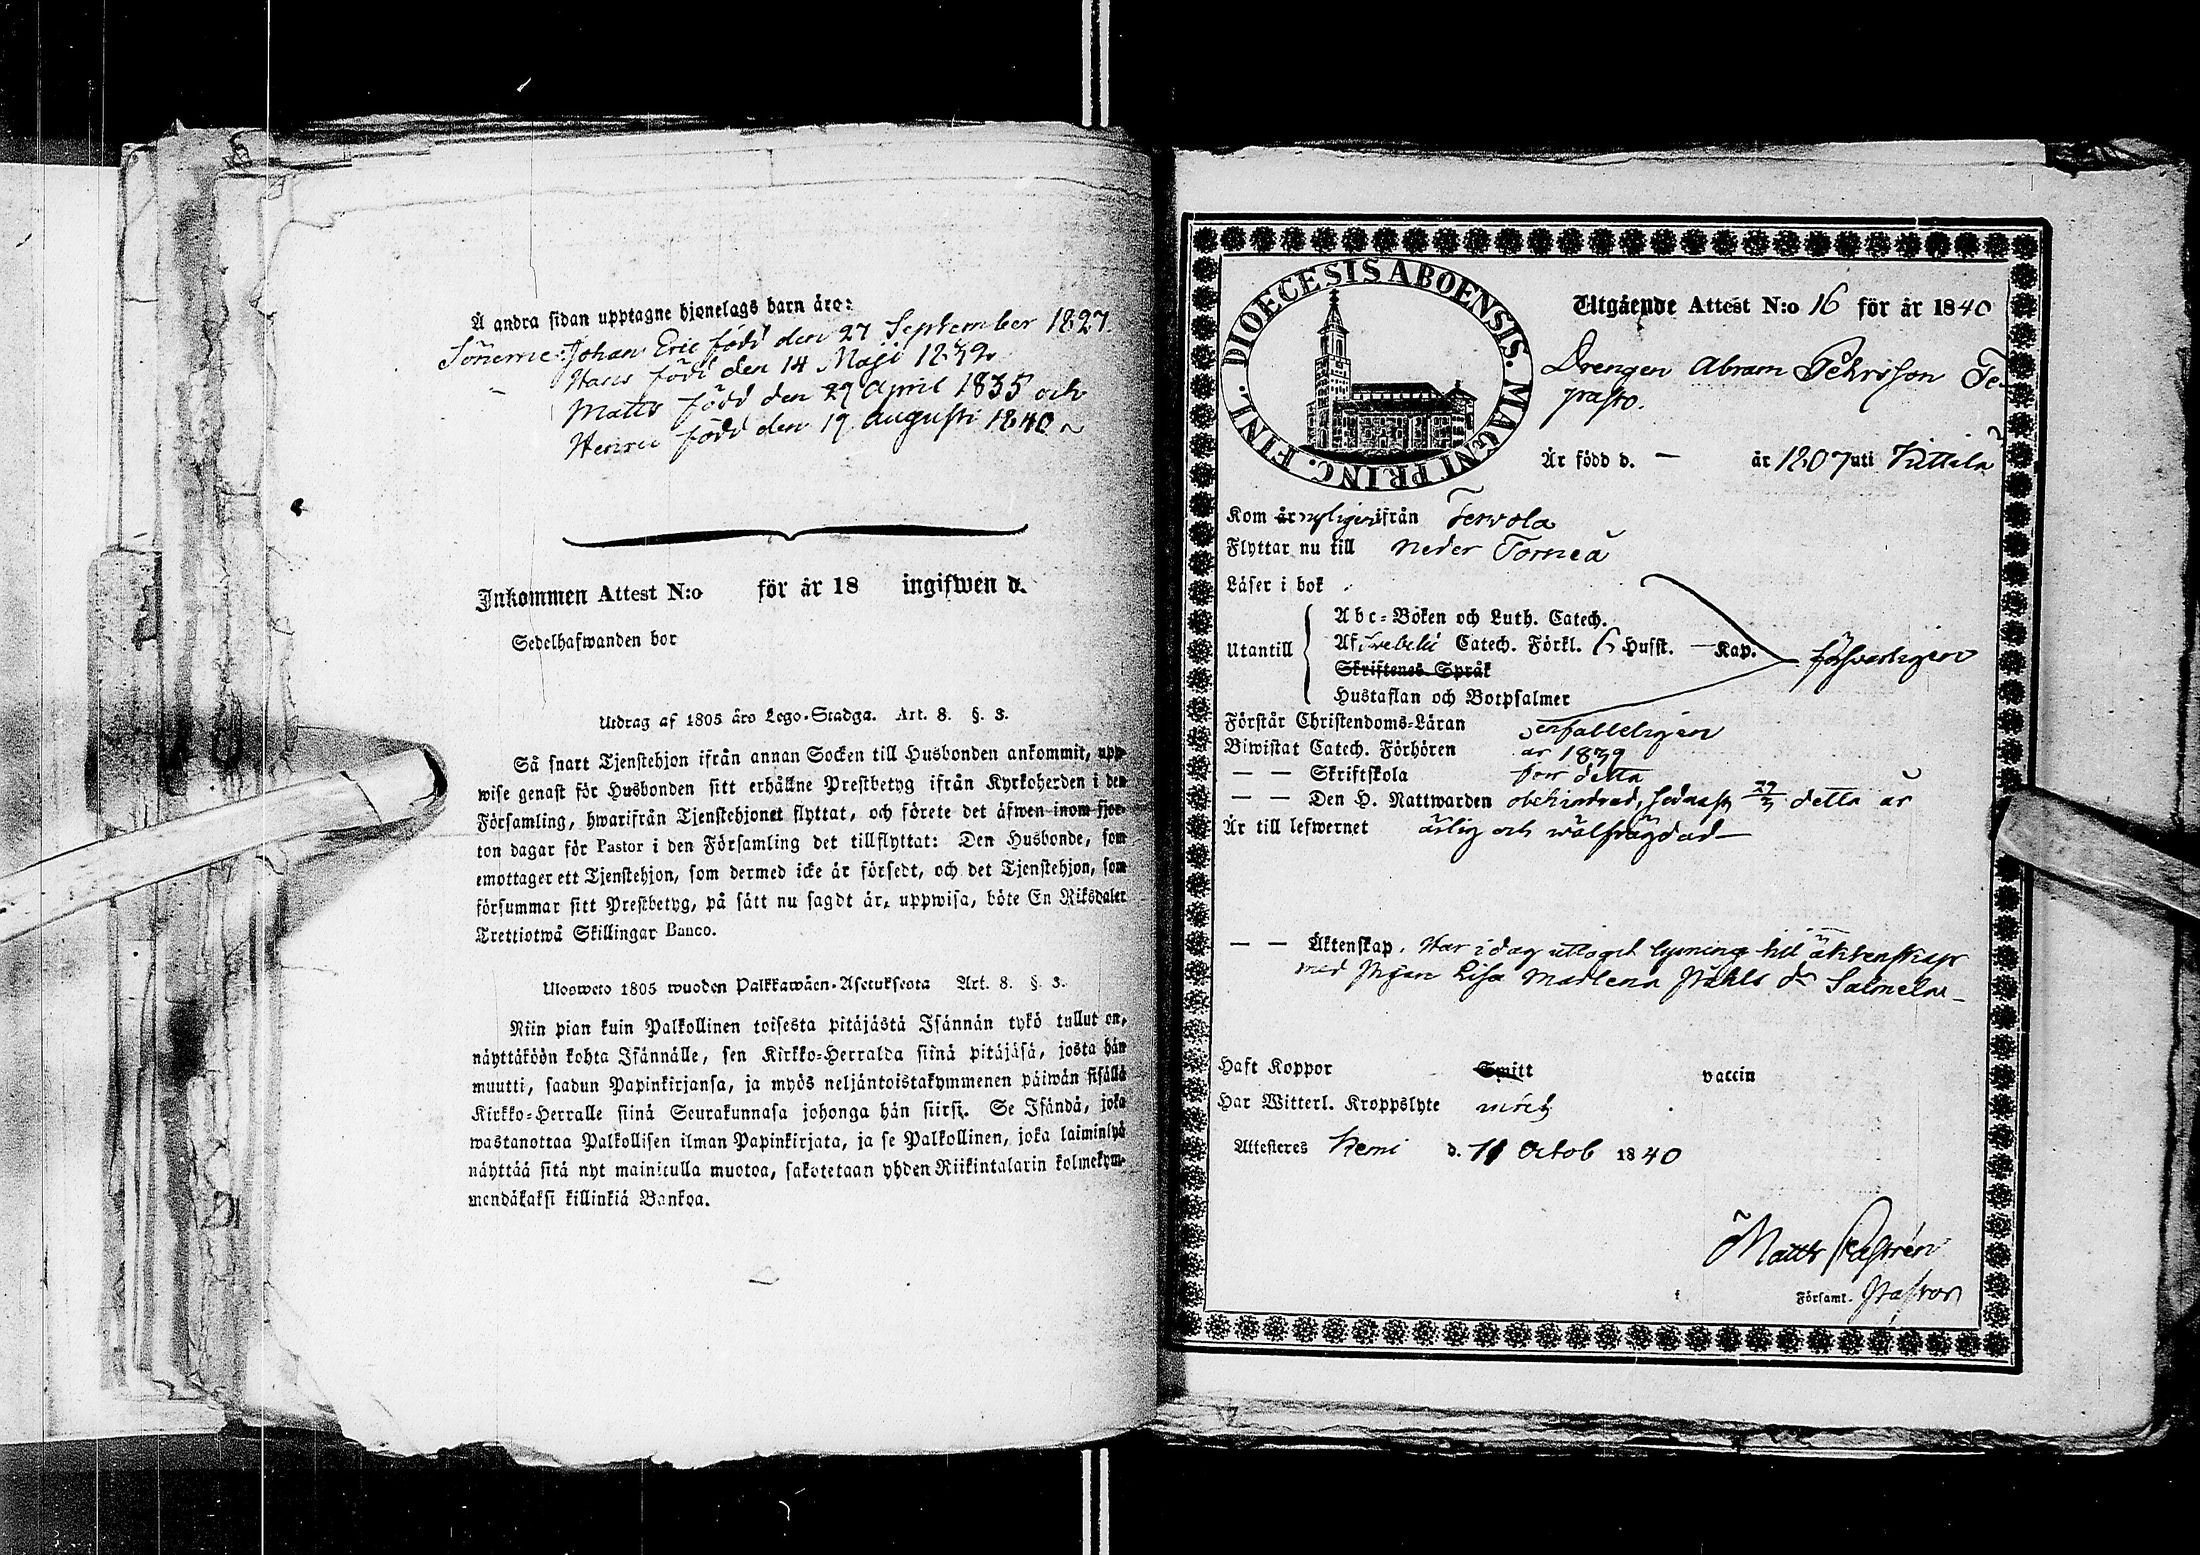 Å andra sidan upptagne hjonelags barn äro:
Sönerne: Johan Eric född den 27 September 1827.
född den 14 Maji
Matts född den 29 April 1835 och
Henric född den 19 Augusti 1840
Inkommen Attest N:o för år 18 ingifwen d.
Sedelhafwanden bor
Utdrag af 1805 års Lego-Stadga. Art. 8. §. 3.
Så snart Tjenstehjon ifrån annan Socken till Husbonden ankommit, upp-
wise genast för Husbonden sitt erhållne Prestbetyg ifrån Kyrkoherden i den
Församling, hwarifrån Tjenstehjonet flyttat, och förete det äfwen inom fjor-
ton dagar för Pastor i den Församling det tillflyttat: Den Husbonde, som
emottager ett Tjenstehjon, som dermed icke är försedt, och det Tjenstehjon, som
försummar sitt Prestbetyg, på sätt nu sagdt är, uppwisa, böte En Riksdaler
Trettiotwå Skillingar Banco.
Ulosweto 1805 wuoden Palkkawäen-Asetuksesta Art. 8. §. 3.
Niin pian kuin Palkollinen toisesta pitäjästä Isännän tykö tullut on,
näyttäköön kohta Isännälle, sen Kirkko-Herralda siinä pitäjäsä, josta hän
muutti, saadun Papinkirjansa, ja myös neljäntoistakymmenen päiwän sisällä
Kirkko-Herralle siinä Seurakunnasa johonga hän siirsi. Se Isändä, joka
wastanottaa Palkollisen ilman Papinkirjata, ja se Palkollinen, joka laiminlyö
näyttää sitä nyt mainitulla muotoa, sakotetaan yhden Riikintalarin kolmekym-
mendäkaksi killinkiä Bankoa.
DIOECESIS ABOENSIS. MAGNI PRINC. FINL.
Utgående Attest N:o 16 för år 1840
Drengen Abram Pehrsson
Är född d. — år 1807 uti Kittilä
Kom år ifrån Tervola
Flyttar nu till Neder Torneå
Läser i bok
Utantill
Abc-Boken och Luth. Catech.
Af Svebelii Catech. Förkl. Husst. — Kap. försvarligen
Skriftenes Språk
Hustaflan och Botpsalmer
Förstår Christendoms-Läran enfalleligen
Biwistat Catech. Förhören år 1839
— — Skriftskola förr detta
— — Den H. Nattwarden obehindrad, sednast 29/3 detta år
Är till lefwernet ärlig och wälfrägdad
— — Äktenskap. Har i dag uttagit lysning till äktenskap
med Pigan Lisa Madlena
Haft Koppor Smitt vaccin
Har Witterl. Kroppslyte
Attesteres Kemi d. 11 Octob 1840
Matts Castrén
Församl. Pastor